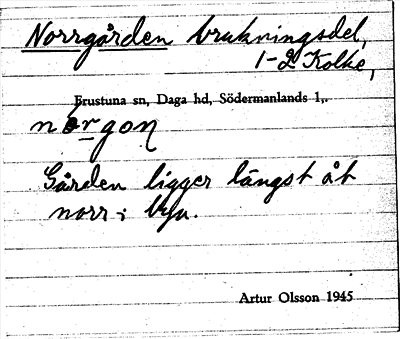 Norrgården brukningsdel,
1-2 Kolke,
Frustuna sn, Daga hd, Södermanlands l,.
norgon
Gården ligger längst åt
norr i byn.
Artur Olsson 1945